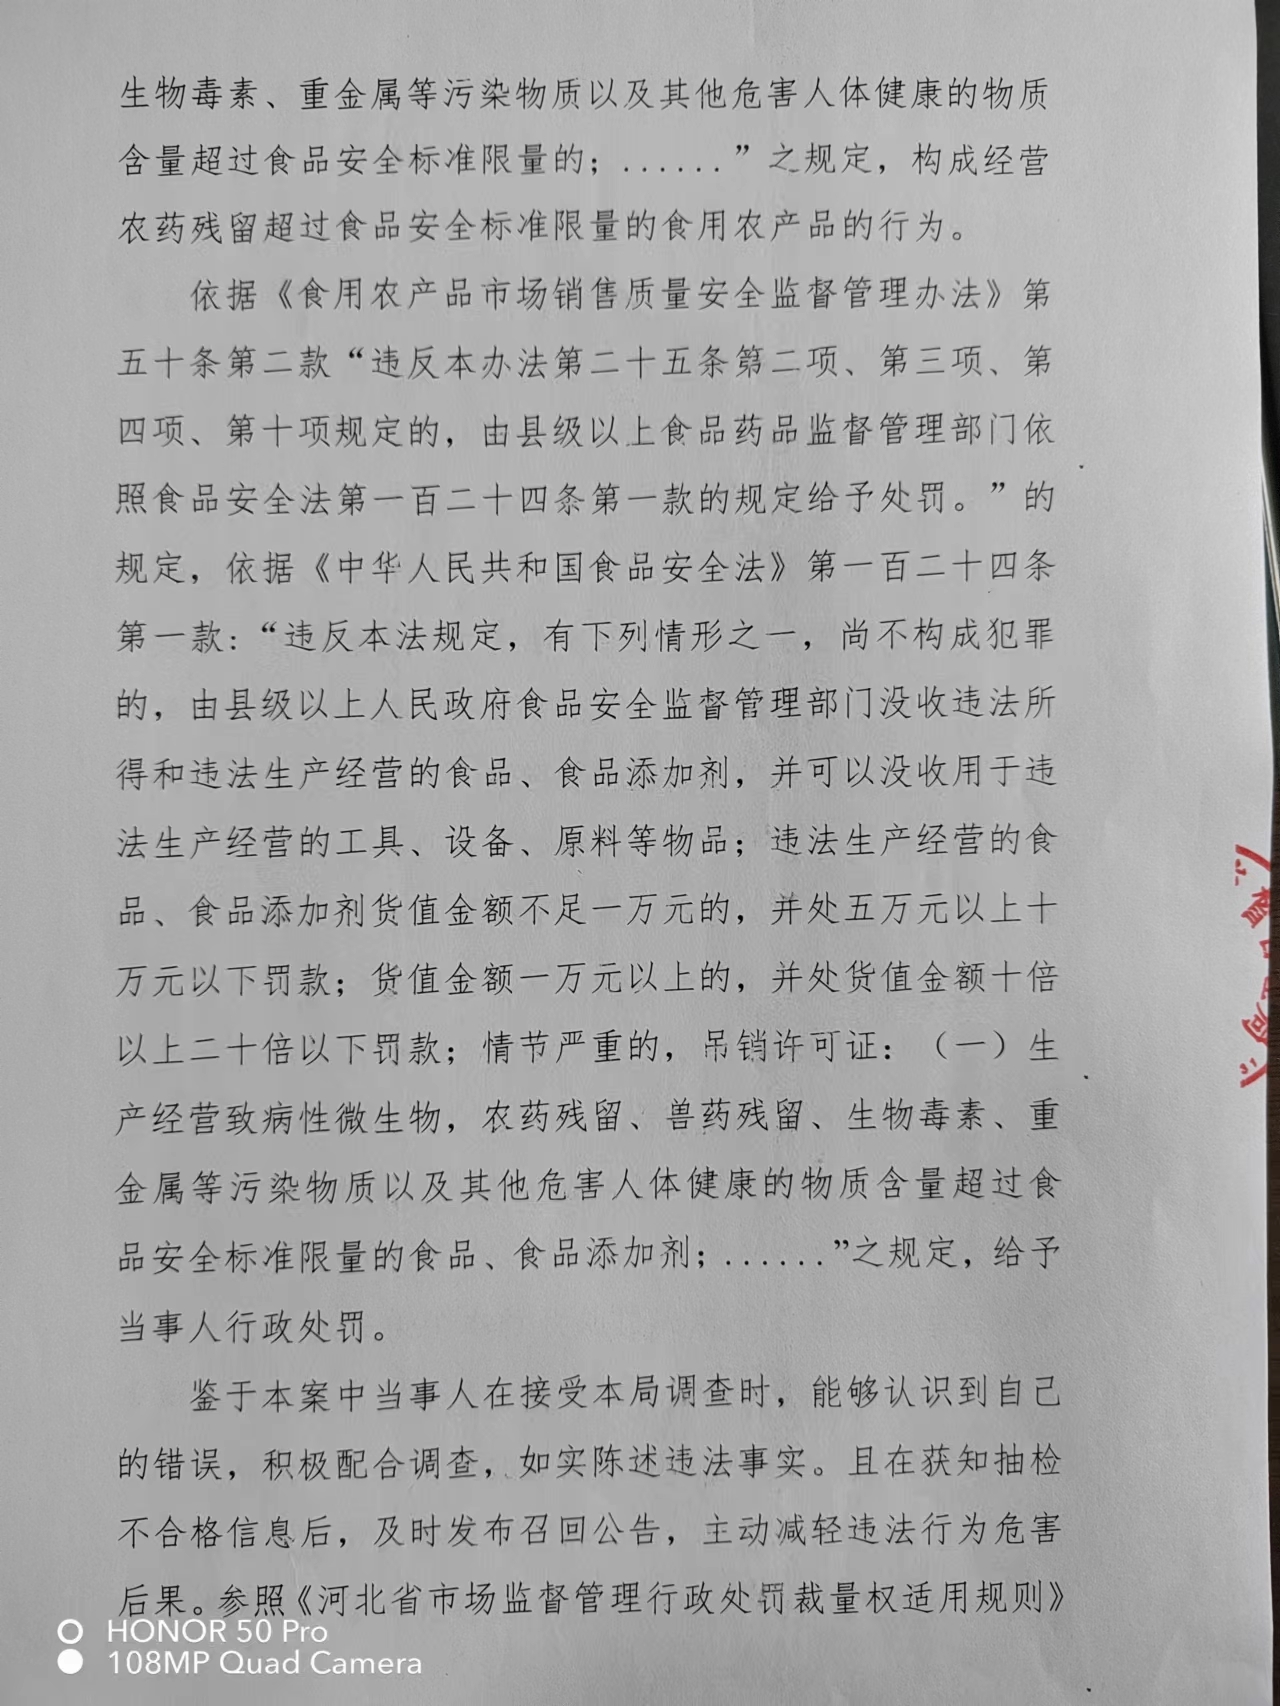 生物毒素、重金属等污染物质以及其他危害人体健康的物质
含量超过食品安全标准限量的；......”之规定，构成经营
农药残留超过食品安全标准限量的食用农产品的行为。
依据《食用农产品市场销售质量安全监督管理办法》第
五十条第二款“违反本办法第二十五条第二项、第三项、第
四项、第十项规定的，由县级以上食品药品监督管理部门依
照食品安全法第一百二十四条第一款的规定给予处罚。”的
规定，依据《中华人民共和国食品安全法》第一百二十四条
第一款：“违反本法规定，有下列情形之一，尚不构成犯罪
的，由县级以上人民政府食品安全监督管理部门没收违法所
得和违法生产经营的食品、食品添加剂，并可以没收用于违
法生产经营的工具、设备、原料等物品；违法生产经营的食
品、食品添加剂货值金额不足一万元的，并处五万元以上十
万元以下罚款；货值金额一万元以上的，并处货值金额十倍
以上二十倍以下罚款；情节严重的，吊销许可证：（一）生
产经营致病性微生物，农药残留、兽药残留、生物毒素、重
金属等污染物质以及其他危害人体健康的物质含量超过食
品安全标准限量的食品、食品添加剂；......”之规定，给予
当事人行政处罚。
鉴于本案中当事人在接受本局调查时，能够认识到自己
的错误，积极配合调查，如实陈述违法事实。且在获知抽检
不合格信息后，及时发布召回公告，主动减轻违法行为危害
后果。参照《河北省市场监督管理行政处罚裁量权适用规则》
HONOR 50 Pro
108MP Quad Camera